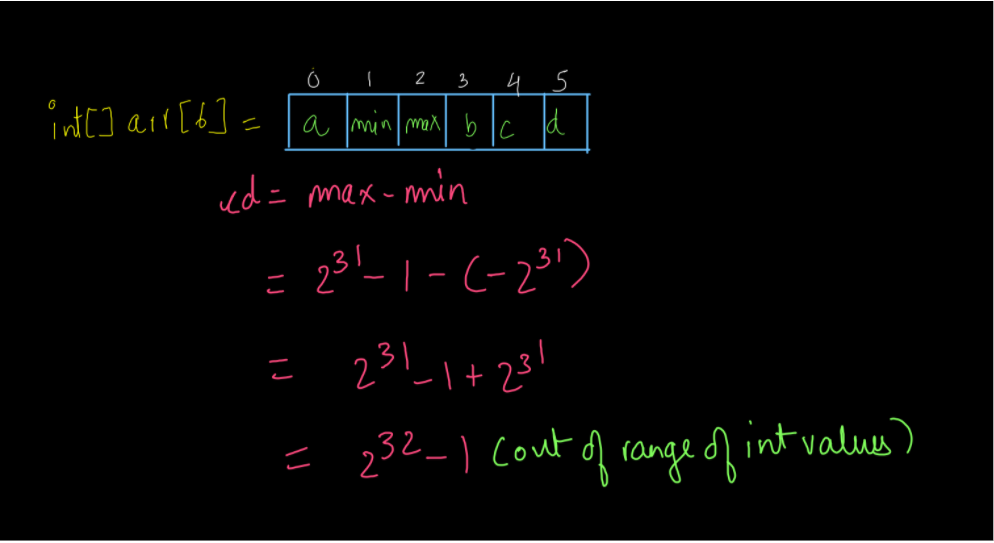 0 1 2 3 4 5
int[] arr[6] = a min max b c d
cd = max - min
= 2^31 - 1 - (-2^31)
= 2^31 - 1 + 2^31
= 2^32 - 1 (out of range of int values)